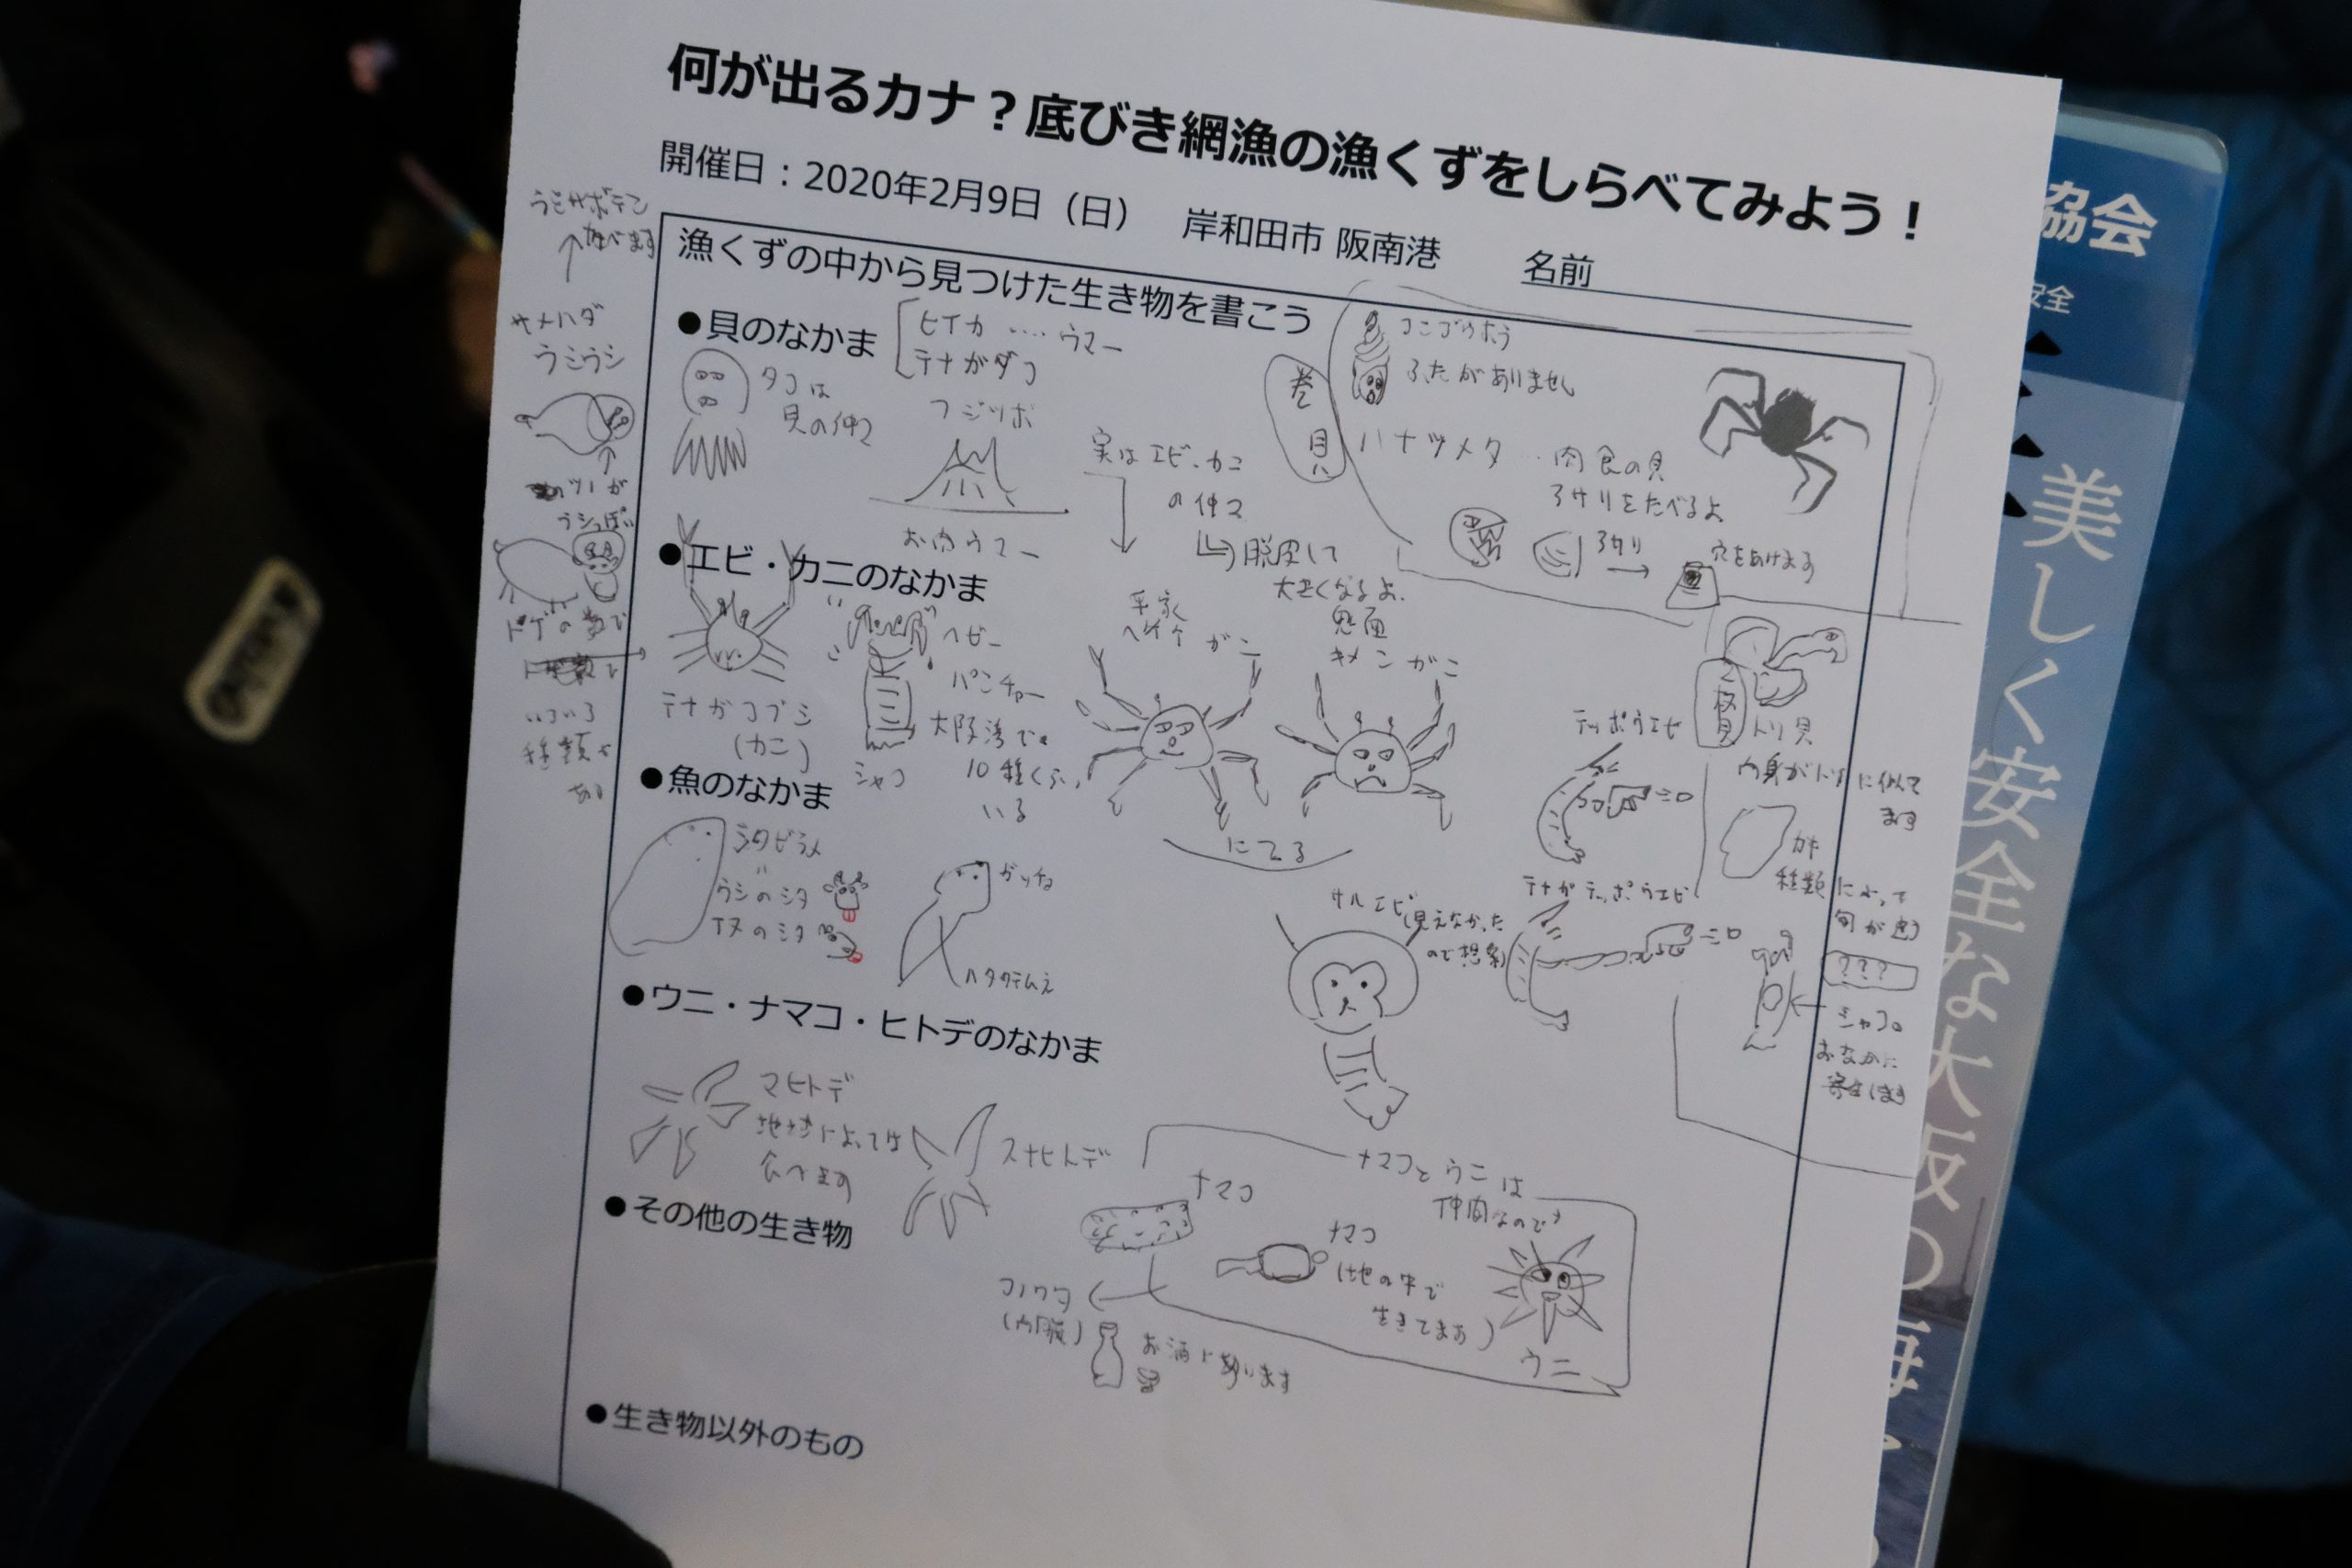 何が出るカナ？底びき網漁の漁くずをしらべてみよう！
開催日：2020年2月9日（日）　岸和田市 阪南港　名前
漁くずの中から見つけた生き物を書こう
●貝のなかま
ヒイカ ‥‥ ウマー
テナガダコ
タコは
貝の仲マ
フジツボ
お肉ウマー
実はエビ、カニ
の仲マ
脱皮して
大きくなるよ.
巻貝
ふたがありません
ハナツメタ … 肉食の貝
アサリをたべるよ
アサリ
穴をあけます
ウミサボテン
食べます
サメハダ
ウミウシ
ツノが
ウシっぽい
トゲの数で
いろいろ
種類が
ある
●エビ・カニのなかま
テナガコブシ
(カニ)
ヘビー
パンチャー
シャコ
大阪湾で
10種くらい
いる
平家
ヘイケ がニ
鬼面
キメン がニ
にてる
テッポウエビ
テナガテッポウエビ
サルエビ(見えなかった
ので想像)
二枚貝
トリ貝
内身がトリに似て
ます
カキ
種類によって
旬が違う
???
シャコの
おなかに
寄生します
●魚のなかま
シタビラメ
ウシのシタ
イヌのシタ
ガッチョ
ハタタテヌメ
●ウニ・ナマコ・ヒトデのなかま
マヒトデ
地域によっては
食べます
スナヒトデ
ナマコとウニは
仲間なのです
ナマコ
ナマコ
(地の中で
生きてます)
ウニ
コノワタ
(内臓)
お酒にあいます
●その他の生き物
●生き物以外のもの
協会
安全
美しく安全な大阪の海